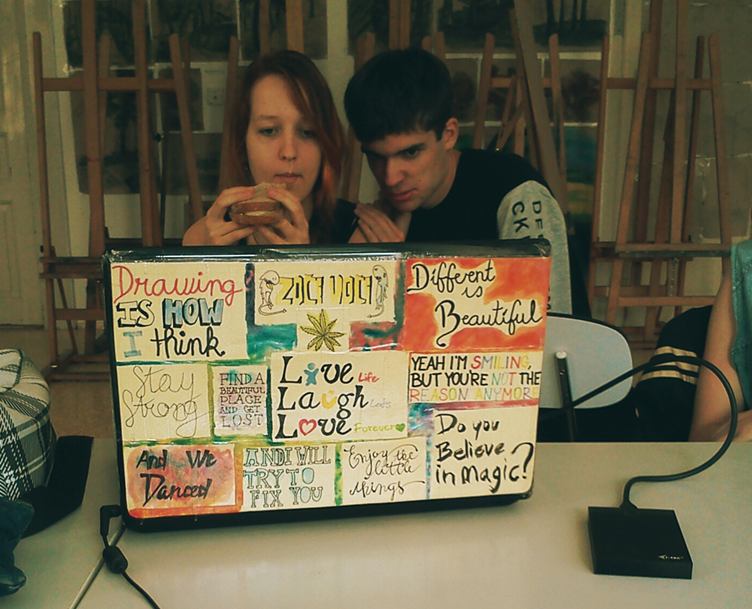 Drawing
IS HOW
I think
Different
is
Beautiful
Stay
Strong
FIND A
BEAUTIFUL
PLACE
AND GET
LOST
Live Life
Laugh Lots
Love Forever
YEAH I'M SMILING,
BUT YOU'RE NOT THE
REASON ANYMORE
And We
Danced
AND I WILL
TRY TO
FIX YOU
Enjoy the
little
things
Do you
Believe
in Magic?
DE
CK